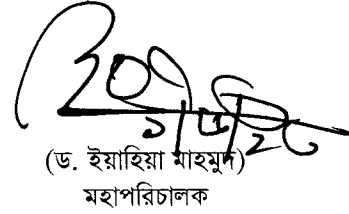 (ড. ইয়াহিয়া মাহমুদ)
মহাপরিচালক